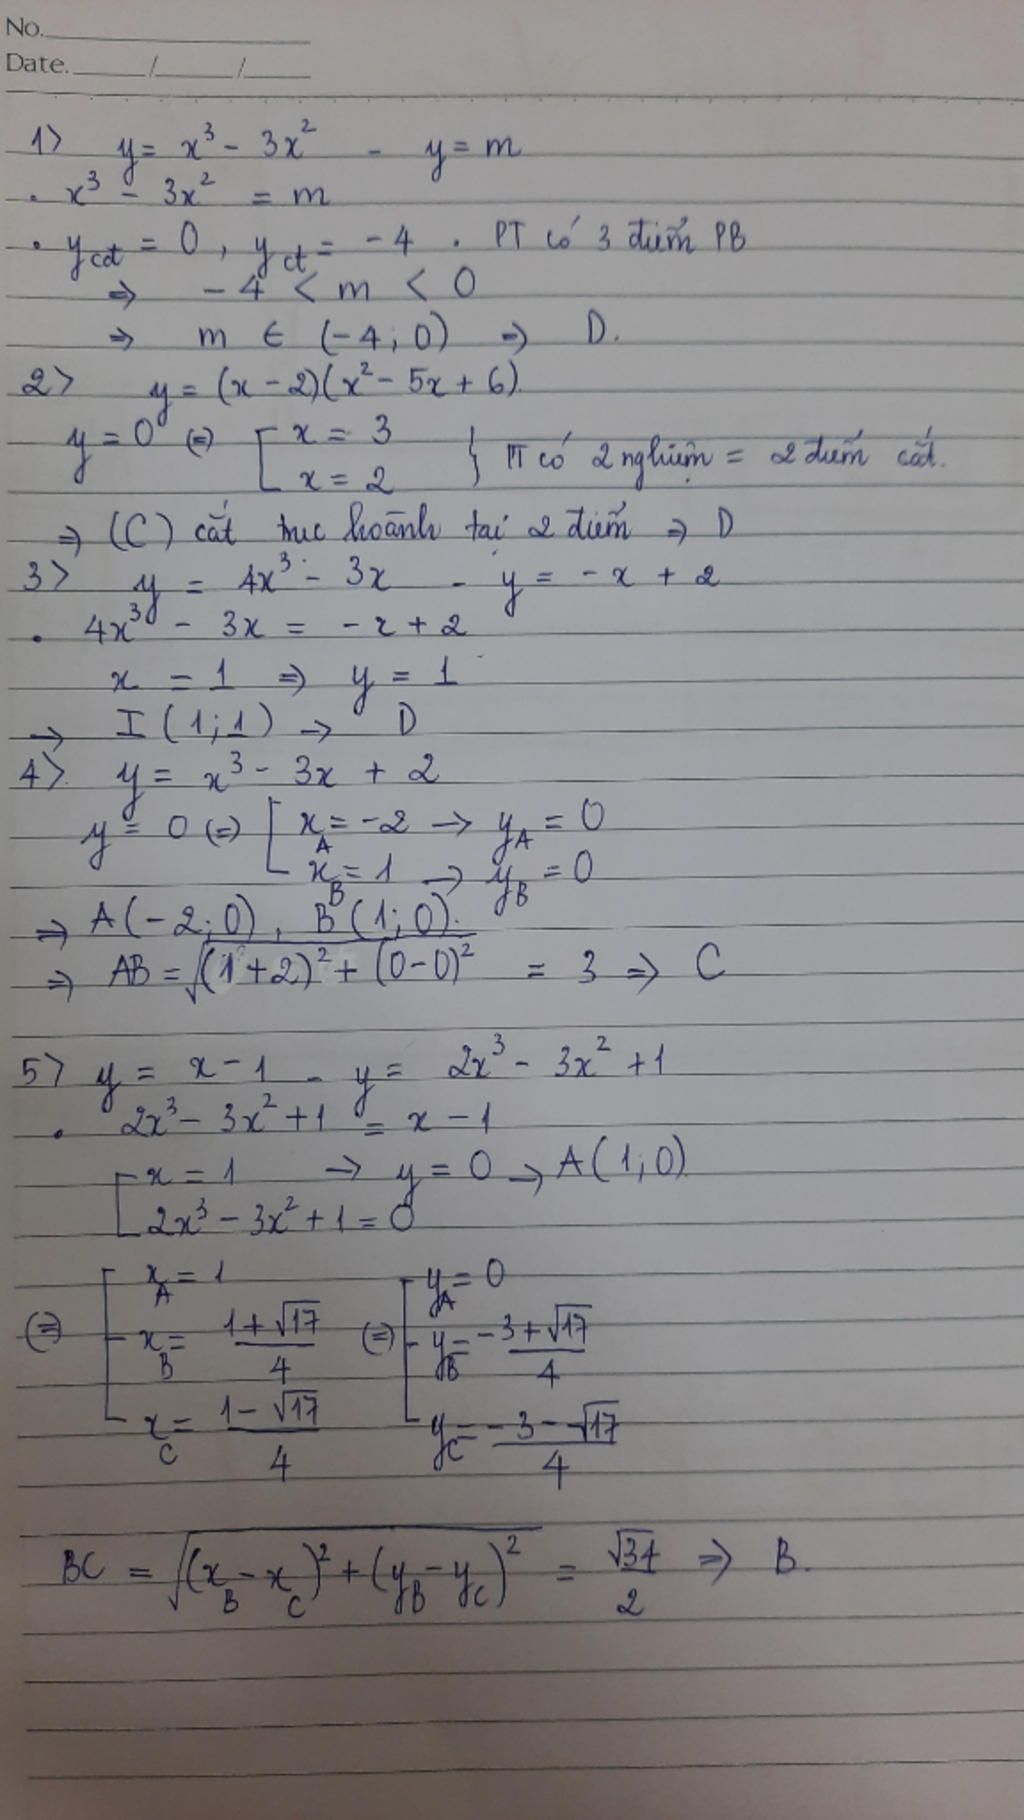 No.
Date. / /
1> y = x³ - 3x² - y = m
. x³ - 3x² = m
. ycđ = 0 , yct = -4 . PT có 3 điểm PB
⇒ -4 < m < 0
⇒ m ∈ (-4; 0) ⇒ D.
2> y = (x - 2)(x² - 5x + 6)
y = 0 (=) [ x = 3
x = 2 } PT có 2 nghiệm = 2 điểm cắt.
⇒ (C) cắt trục hoành tại 2 điểm ⇒ D
3> y = 4x³ - 3x - y = -x + 2
. 4x³ - 3x = -x + 2
x = 1 ⇒ y = 1
→ I (1; 1) → D
4> y = x³ - 3x + 2
y = 0 (=) [ x_A = -2 → y_A = 0
x_B = 1 → y_B = 0
⇒ A(-2; 0), B(1; 0).
⇒ AB = √((1+2)² + (0-0)²) = 3 ⇒ C
5> y = x - 1 - y = 2x³ - 3x² + 1
. 2x³ - 3x² + 1 = x - 1
[ x = 1 → y = 0 → A(1; 0)
2x³ - 3x² + 1 = 0
(=) [ x_A = 1 (=) [ y_A = 0
x_B = (1 + √17)/4 y_B = (-3 + √17)/4
x_C = (1 - √17)/4 y_C = (-3 - √17)/4
BC = √((x_B - x_C)² + (y_B - y_C)²) = √34/2 ⇒ B.